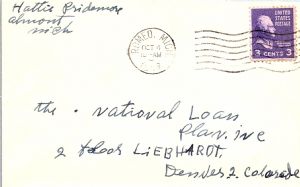 Hattie Pridemore
almont
mich
ROMEO, MICH.
OCT 4
AM
UNITED STATES
POSTAGE
3 CENTS 3
the. National Loan
Plan. inc
2 floor LiEBHARDT.
Denver 2 Colorado